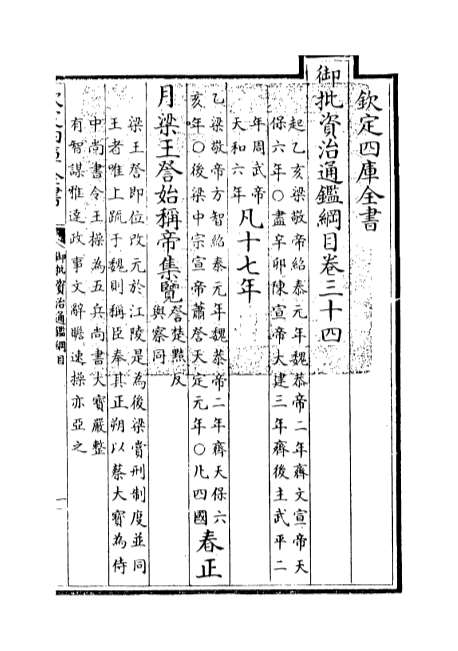 欽定四庫全書
御批資治通鑑綱目卷三十四
起乙亥梁敬帝紹泰元年魏恭帝二年齊文宣帝天
保六年〇盡辛卯陳宣帝大建三年齊後主武平二
年周武帝
天和六年
凡十七年
乙梁敬帝方智紹泰元年魏恭帝二年齊天保六
亥年〇後梁中宗宣帝蕭詧天定元年〇凡四國
春正
月梁王詧始稱帝集覽
詧楚黠反
與察同
梁王詧即位改元於江陵是為後梁賞刑制度並同
王者唯上疏于魏則稱臣奉其正朔以蔡大寶為侍
中尚書令王操為五兵尚書大寶嚴整
有智謀雅達政事文辭贍速操亦亞之
欽定四庫全書
御批資治通鑑綱目
一